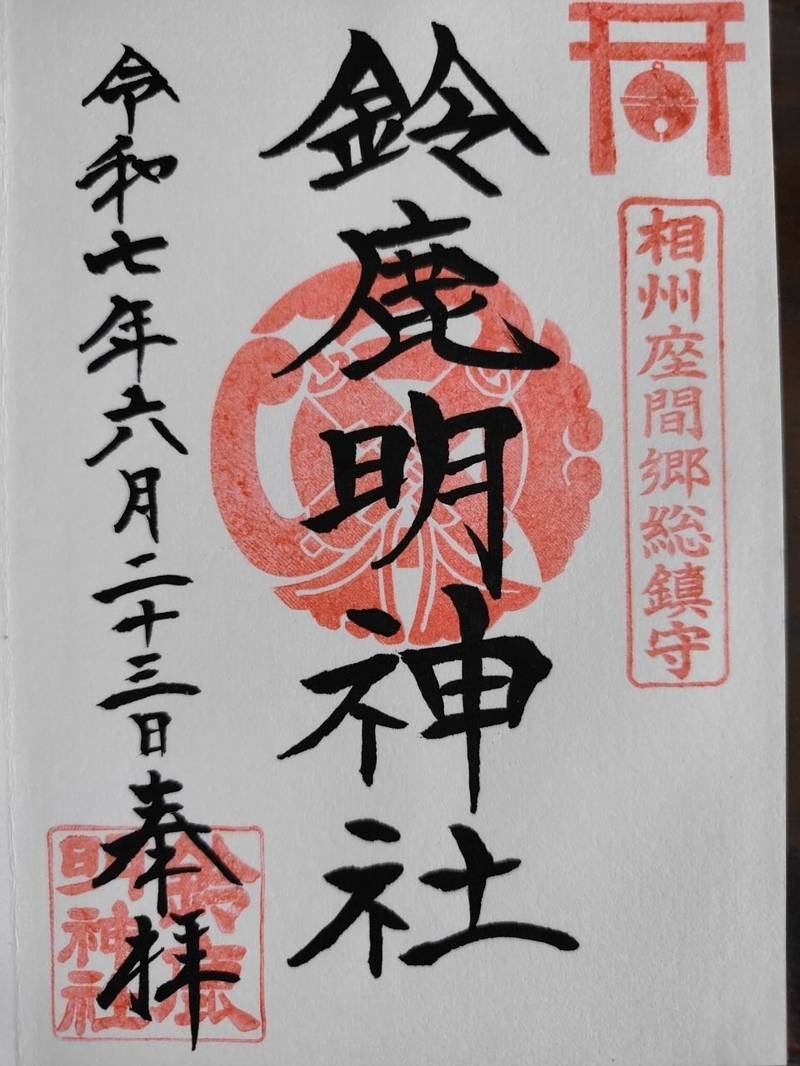 相州座間郷総鎮守
鈴鹿明神社
令和七年六月二十三日奉拝
鈴鹿
明神社